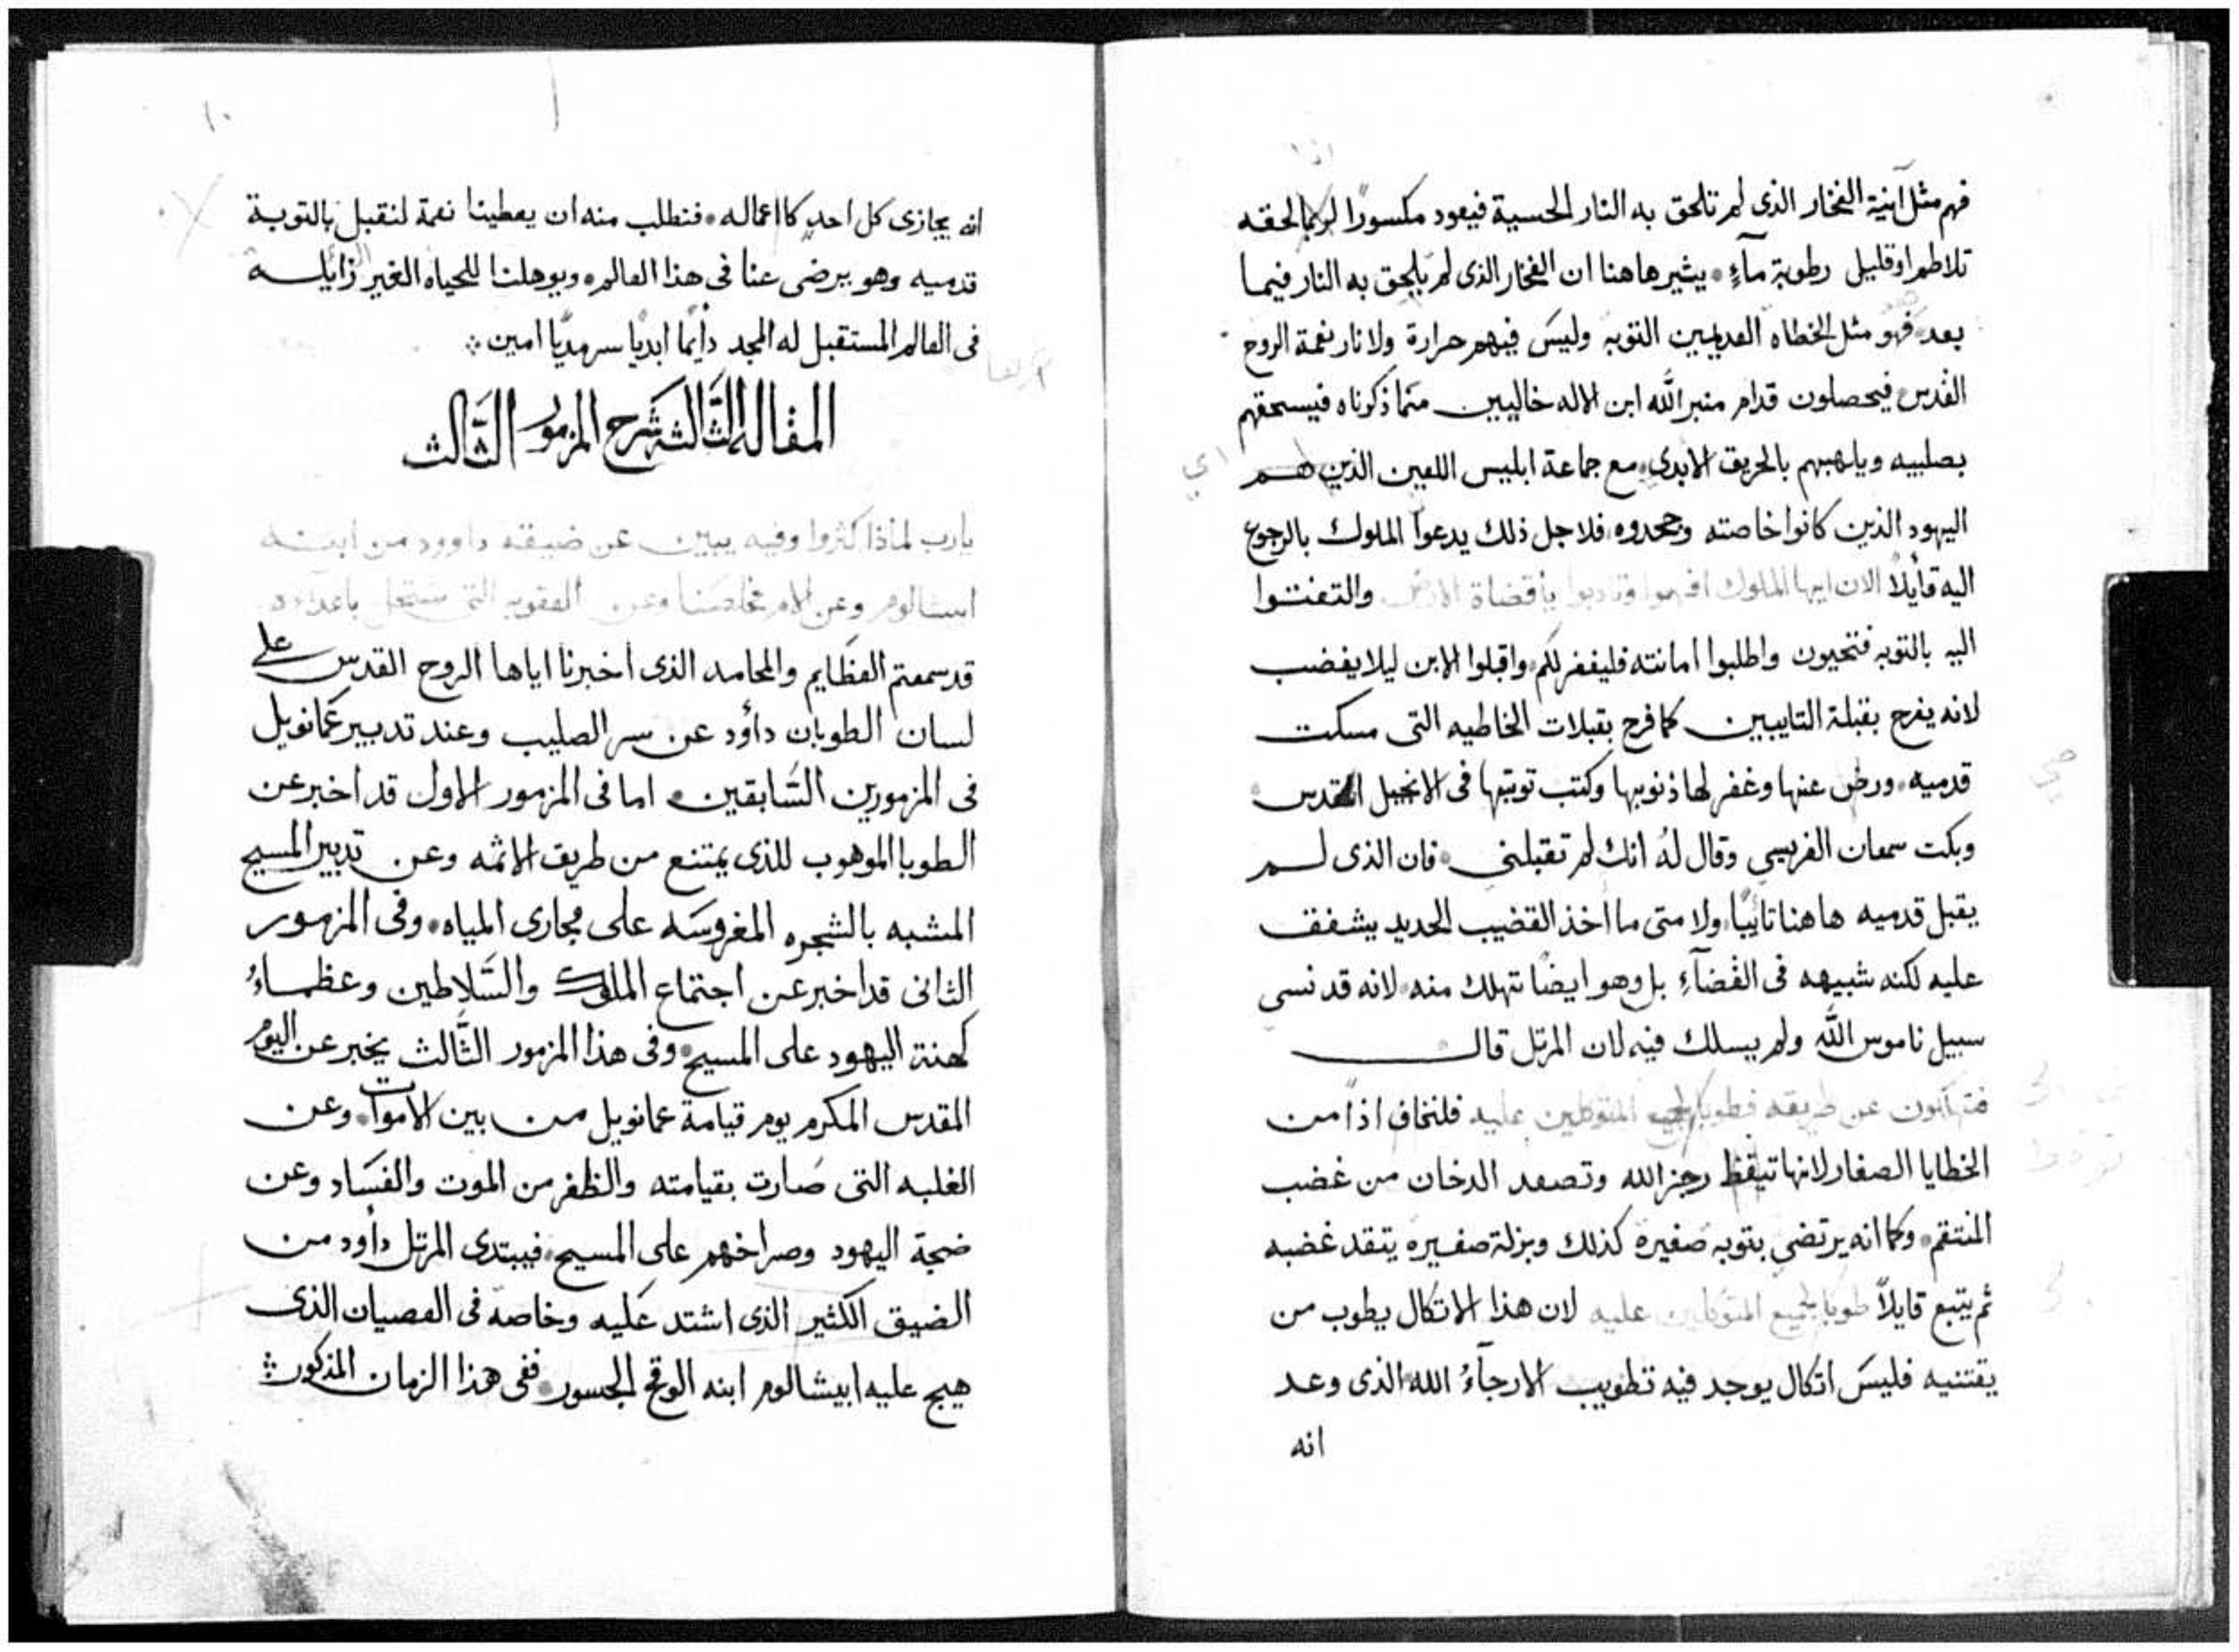 فهم مثل آنية الفخار الذى لم تلحق به النار الحسية فيعود مكسورًا لحقه
تلاطم او قليل رطوبة مآءٍ يشير هاهنا ان الفخار الذى لم يلحق به النار فيما
بعد فهو مثل الخطاه العديمين التوبه وليسَ فيهم حرارة ولا نار نعمة الروح
القدس فيحصلون قدام منبر الله ابن الاله خاليين ممّا ذكرناه فيسحقهم
بصليبه ويلهبهم بالحريق الابدى مع جماعة ابليس اللعين الذين هم
اليهود الذين كانوا خاصته وجحدوه فلاجل ذلك يدعوا الملوك بالرجوع
اليه قايلاً الان ايها الملوك افهموا وتادبوا ياقضاة الارض والتفتوا
اليه بالتوبه فتحيون واطلبوا امانته فليغفر لكم واقبلوا الابن ليلا يغضب
لانه يفرح بقبلة التايبين كما فرح بقبلات الخاطيه التى مسكت
قدميه ورضى عنها وغفر لها ذنوبها وكتب توبتها فى الانجيل المقدس
وبكت سمعان الفريسي وقال لهُ انك لم تقبلنى فان الذى لم
يقبل قدميه هاهنا تائبًا ولا متى ما أخذ القضيب الحديد يشفق
عليه لكنه شبيهه فى القضآءِ بل وهو ايضًا تهلك منه لانه قد نسى
سبيل ناموس الله ولم يسلك فيه لان المرتل قال
عن طريقه فطوبا المتوكلين عليه فلنخاف اذًا من
الخطايا الصغار لانها تيقظ رجز الله وتصعد الدخان من غضب
المنتقم وكما انه يرتضي بتوبه صغيرة كذلك وبزلة صغيره يتقد غضبه
ثم يتبع قايلاً طوبا لجميع المتوكلين عليه لان هذا الاتكال يطوب من
يقتنيه فليسَ اتكال يوجد فيه تطويب الارجآءُ الله الذى وعد
انه
١٠
انه يجازى كل احدٍ كااعماله فنطلب منه ان يعطينا نعمة لنقبل بالتوبة
قدميه وهو يرضى عنا فى هذا العالم ويوهلنا للحياه الغير زايله
فى العالم المستقبل له المجد دأيمًا ابديًا سرمديًا امين
المقاله الثالثه شرح المزمور الثالث
يارب لماذا كثروا وفيه يبين عن ضيقته داوود من ابنه
ابيشالوم وعن الام مخلصنا وعن العقوبه التى ستحل باعداه
قد سمعتم العظايم والمحامد الذى أخبرنا اياها الروح القدس على
لسان الطوبان داؤد عن سر الصليب وعند تدبير عمانويل
فى المزمورين السَّابقين اما فى المزمور الاول قد اخبر عن
الطوبا الموهوب للذى يمتنع من طريق الاثمه وعن تدبير المسيح
المشبه بالشجره المغروسَه على مجارى المياه وفى المزمور
الثانى قد اخبر عن اجتماع الملوك والسَّلاطين وعظماءُ
كهنة اليهود على المسيح وفى هذا المزمور الثَّالث يخبر عن اليوم
المقدس المكرم يوم قيامة عمانويل من بين الاموات وعن
الغلبه التى صَارت بقيامته والظفر من الموت والفسَاد وعن
ضجة اليهود وصراخهم على المسيح فيبتدى المرتل دأود من
الضيق الكثير الذى اشتد عَليه وخاصةً فى العصيان الذى
هيج عليه ابيشالوم ابنه الوقح الجسور ففى هذا الزمان المذكور